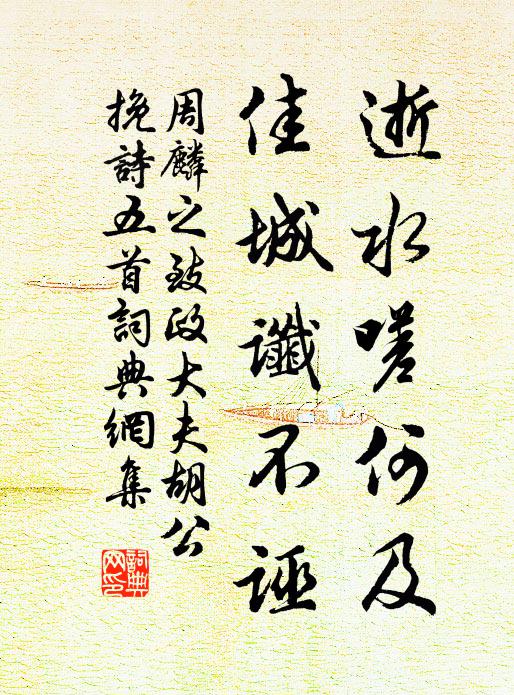 逝水嗟何及
佳城讖不誣
周麟之致政大夫胡公
挽詩五首詞典網集
詞典
网印